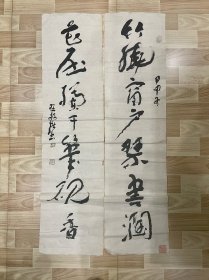 甲申年
竹繞窗戶琴書潤
花壓欄干筆硯香